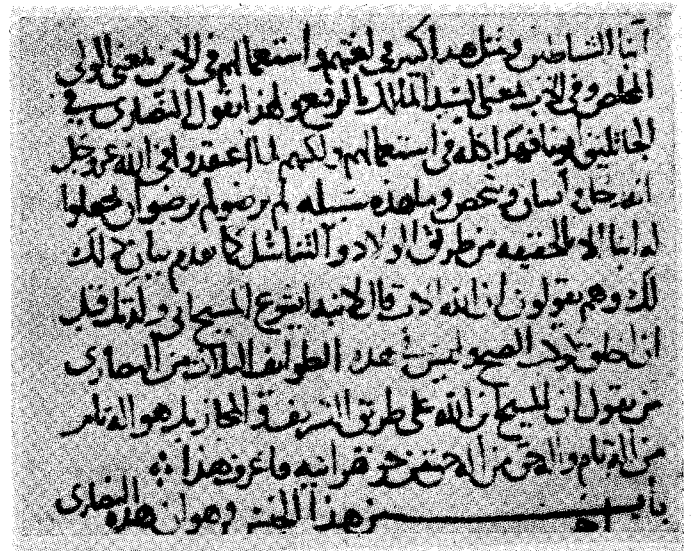 أبنا الشياطين ومثل هذا كثير في لغتهم واستعمالهم في الابن بمعنى الولي
المخلص وفي الرب بمعنى السيد المالك الرفيع ولهذا يقول النصارى في
الجاثليق أبونا فهكذا كله في استعمالهم ولكنهم لما اعتقدوا في الله عز وجل
انه وانسان وشخص وما هذه سبيله لم يرضو لم يرضوا ان يجعلوا
له ابنا الا بالحقيقه من طريق الولاد والتناسل كما تقدم بيان ذلك
لك وهم يقولون ان الله الاب قال لابنه ايشوع المسيح اني ولدتك قبل
ان اخلق الصبح وليس في هذه الطوايف الثلاث من النصارى
من يقول ان المسيح ابن الله على طريق التشريف والمجاز بل هو اله تام
من اله تام واله حق من اله حق من جوهر ابيه فاعرف هذا
باب اخر من هذا الجنس وهو ان هذه النصارى